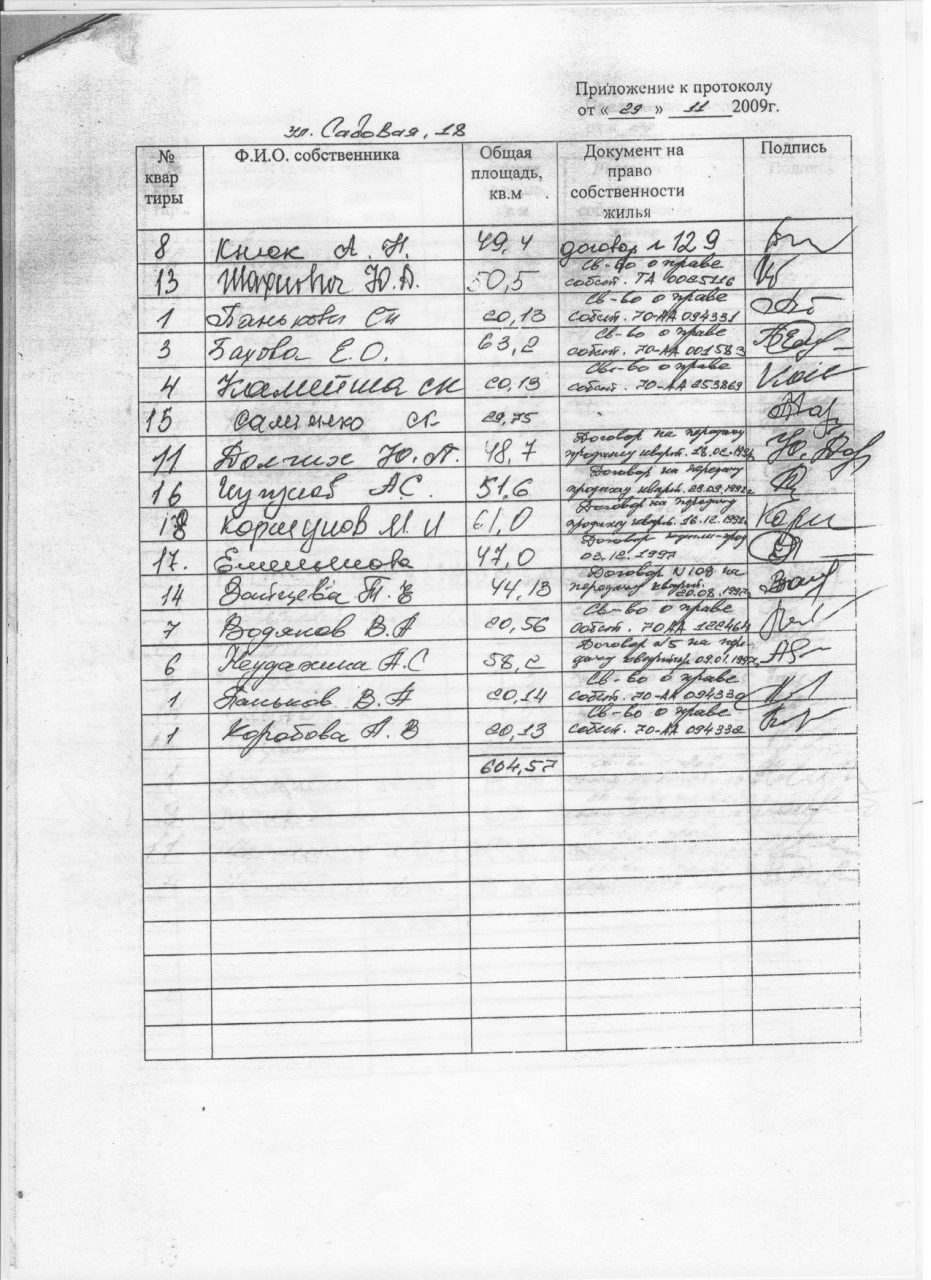 Приложение к протоколу
от « 29 » 11 2009г.
ул. Садовая, 18
№ квар тиры Ф.И.О. собственника Общая площадь, кв.м Документ на право собственности жилья Подпись
8 Кнюк А. Н. 49,4 договор № 129
13 Ю.А. 50,5 Св-во о праве
собст. ТА 0025116
1 Панькова Сн 20,13 Св-во о праве
собст. 70-АА 094331
3 Бахова Е.О. 63,2 Св-во о праве
собст. 70-АА 001583
4 20,13 Св-во о праве
собст. 70-АА 253869
15 29,75
11 Долгих Ю.П. 48,7 Договор на передачу
продажу кварт.
16 АС. 51,6 Договор на передачу
продажу кварт.
Коршунов М И 61,0 Договор на передачу
продажу кварт. 16.12.1992г
17. Емельянова 47,0 Договор
03.12.1997
14 Зайцева Т. Е 44,13 Договор N108 на
передачу кварт. 20.08.1992
7 Водяков В.А 20,56 Св-во о праве
собст. 70 АА 122464
6 Неудахина А.С 58,2 Договор №5 на пере-
дачу квартир 09.01.1992
1 Паньков В.А 20,14 Св-во о праве
собст. 70-АА 094330
1 Коробова А. В 20,13 Св-во о праве
собст. 70-АА 094332
604,57